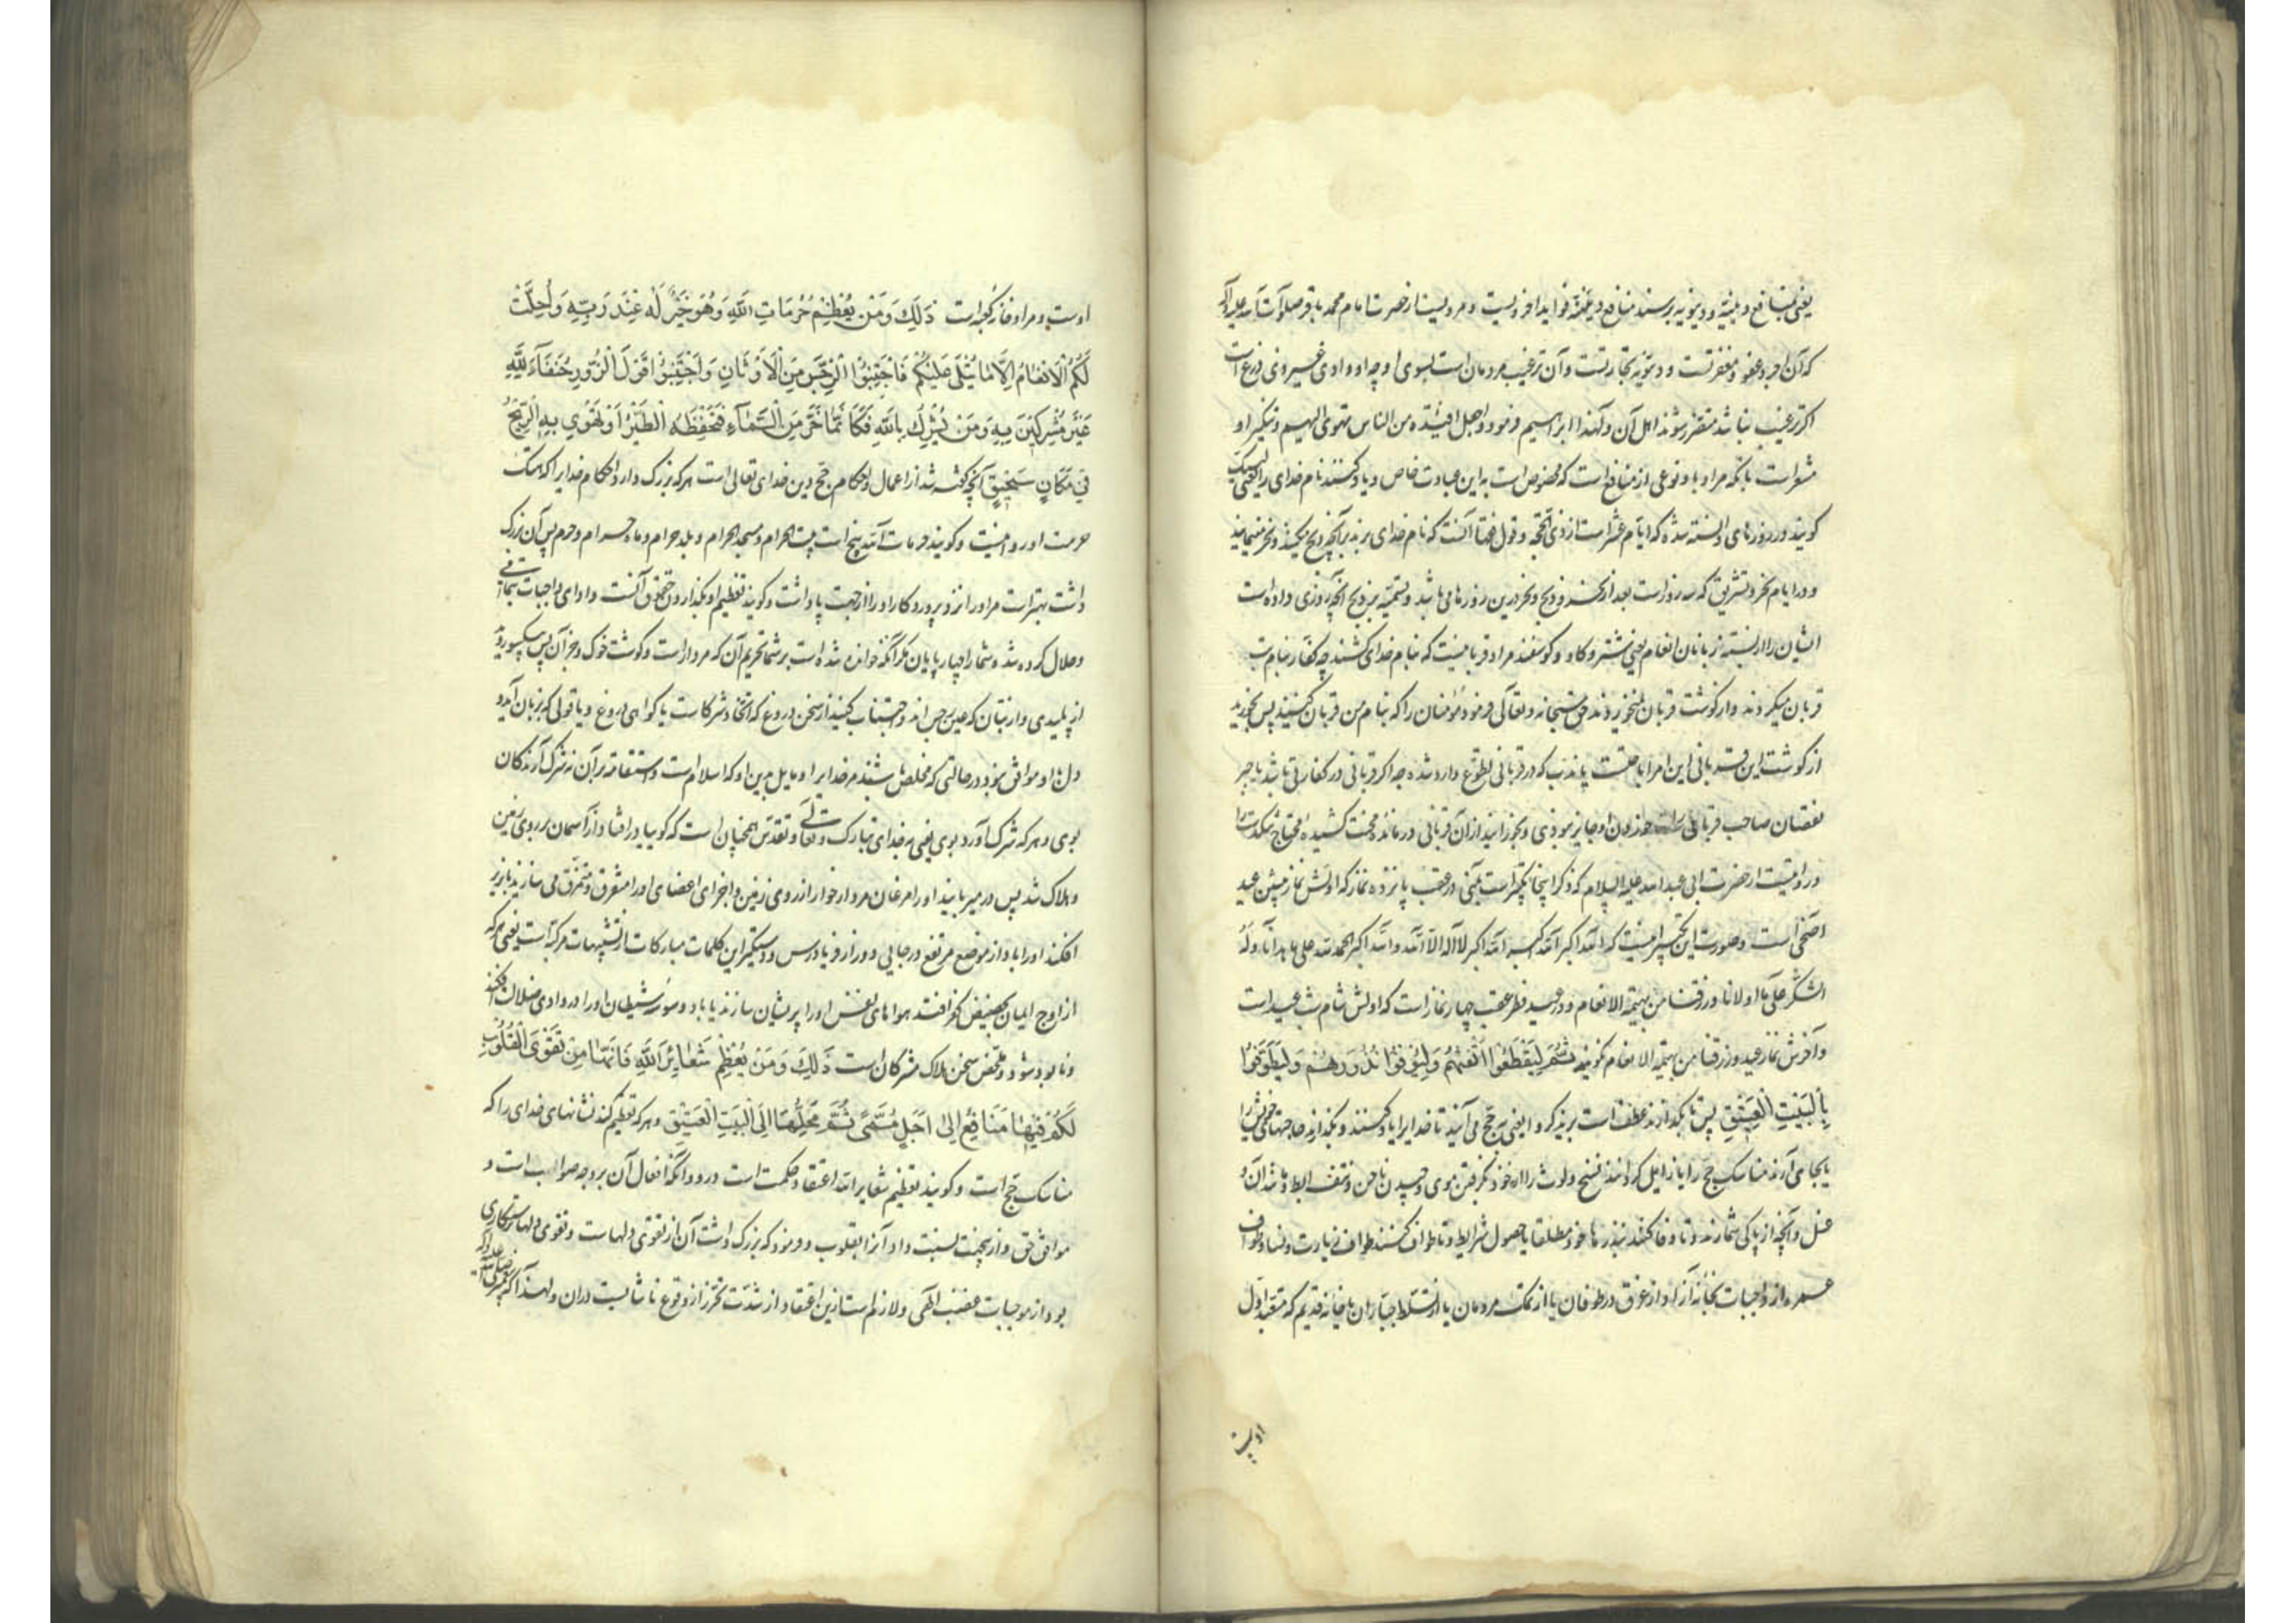 یعنی بمنافع دینیه و دنیویه برسند منافع دینیه فواید اخرویست و مرویست از حضرت امام محمد باقر صلوات الله علیه که
که آن اجر و عفو و مغفرتست و دنیویه تجارتست و آن ترغیب مردمان است بسوی او چه او وادی غیر ذی زرع است
اکر ترغیب نباشد متضرر شوند اهل آن و لهذا ابراهیم فرمود واجعل افئدة من الناس تهوی الیهم و تنکیر او
مشعر است بانکه مراد باو نوعی از منافع است که مخصوص است باین عبادت خاص و یاد کنند نام خدای را یعنی لبیک
کویند در روزهای دانسته شده که ایام عشر است از ذی الحجه و قول فقها آنست که نام خدای برند بر آنچه ذبح میکنند و نحر مینمایند
و در ایام نحر و تشریق که سه روز است بعد از نحر و ذبح و نحر درین روزها می باشد و تسمیه بر ذبح آنچه روزی داده است
ایشان را از بسته زبانان انعام یعنی شتر و کاو و کوسفند مراد قربانیست که بنام خدای کشند چه کفار بنام بت
قربان میکردند و از کوشت قربان نمیخوردند حق سبحانه و تعالی فرمود مؤمنان را که بنام من قربان کنید پس بخورید
از کوشت این قربانی این امر اباحتست یا ندب که در قربانی تطوع وارد شده چه اکر قربانی در کفارتی باشد یا جبر
نقصان صاحب قربانی را خوردن او جایز نبودی و بخورانید از آن قربانی درمانده محنت کشیده محتاج تنکدست را
و روایتست از حضرت ابی عبد الله علیه السلام که ذکر اینجا تکبیر است بمنی در عقب پانزده نماز که اولش نماز پیشین عید
اضحی است و صورت این تکبیر اینست که الله اکبر الله اکبر لا اله الا الله والله اکبر الحمد لله علی ما هدانا وله
الشکر علی ما اولانا ورزقنا من بهیمة الانعام و در عید فطر عقب چهار نماز است که اولش شام شب عید است
و آخرش نماز عید ورزقنا من بهیمة الانعام نکویند ثُمَّ لْيَقْضُوا تَفَثَهُمْ وَلْيُوفُوا نُذُورَهُمْ وَلْيَطَّوَّفُوا
بِالْبَيْتِ الْعَتِيقِ پس تا بکذارند عطف است بر یذکروا یعنی بحج می آیند تا خدایرا یاد کنند و بکذارند حاجتهای خویش را
یا بجا می آرند مناسک حج را یا زایل کردانند وسخ و لوث را از خود بکرفتن موی و چیدن ناخن و نتف ابط و مانند آن و
غسل و آنچه از پاکی شمارند و تا وفا کنند بنذرها خود مطلقا یا حصول شرایط و تا طواف کنند طواف زیارت و نسا و طواف
عمره از واجبات بخانه آزاد از غرق در طوفان یا از تملک مردمان یا از تسلط جباران یا خانه قدیم که متعبد اول
اوست
اوست و مراد خانه کعبه است ذَلِكَ وَمَن يُعَظِّمْ حُرُمَاتِ اللَّهِ وَهُوَ خَيْرٌ لَهُ عِنْدَ رَبِّهِ وَأُحِلَّتْ
لَكُمُ الْأَنْعَامُ إِلَّا مَا يُتْلَى عَلَيْكُمْ فَاجْتَنِبُوا الرِّجْسَ مِنَ الْأَوْثَانِ وَاجْتَنِبُوا قَوْلَ الزُّورِ حُنَفَآءَ لِلَّهِ
غَيْرَ مُشْرِكِينَ بِهِ وَمَنْ يُشْرِكْ بِاللَّهِ فَكَأَنَّمَا خَرَّ مِنَ السَّمَآءِ فَتَخْطَفُهُ الطَّيْرُ أَوْ تَهْوِي بِهِ الرِّيحُ
فِي مَكَانٍ سَحِيقٍ آنچه کفته شد از اعمال و احکام حج دین خدای تعالی است هر که بزرک دارد احکام خدایرا که هتک
حرمت او روا نیست و کویند حرمات الله پنج است بیت الحرام و مسجد الحرام و بلد حرام و ماه حرام و حرم پس آن بزرک
داشت بهتر است مر او را نزد پروردکار او را از جهت پاداشت و کویند تعظیم او بکذاردن حقوق آنست و ادای واجبات
و حلال کرده شد و شما را چهارپایان مکر آنکه خوانده شده است بر شما تحریم آن که مردار است و کوشت خوک و جز آن پس یکسو روید
از پلیدی و از بتان که عین رجس اند و اجتناب کنید از سخن دروغ که اتخاذ شرکاست یا کواهی دروغ و یا قولی که بزبان آید و
دل با او موافق نبود در حالتی که مخلص باشند مر خدایرا و مایل بدین او که اسلام است و استقامه بر آن نه شرک آرندکان
بوی و هر که شرک آورد بوی یعنی نه خدای تبارک و تعالی و تقدس همچنان است که کوییا در افتاد از آسمان بر روی زمین
و هلاک شد پس درمیربایند او را مرغان مردارخوار از روی زمین و اجزای اعضای او را متفرق و متمزق می سازند یا بزیر
افکند او را باد از موضع مرتفع در جایی دور از فریادرس و دستکیر این کلمات مبارکات از تشبیهات مرکبه است یعنی هر که
از اوج ایمان بحضیض کفر افتد هواهای نفس او را پریشان سازند یا باد وسوسه شیطان او را در وادی ضلالت افکند
و نابود شود و ملخص سخن هلاک مشرکان است ذَلِكَ وَمَنْ يُعَظِّمْ شَعَائِرَ اللَّهِ فَإِنَّهَا مِنْ تَقْوَى الْقُلُوبِ
لَكُمْ فِيهَا مَنَافِعُ إِلَى أَجَلٍ مُسَمًّى ثُمَّ مَحِلُّهَا إِلَى الْبَيْتِ الْعَتِيقِ و هر که تعظیم کند نشانهای خدای را که
مناسک حج است و کویند تعظیم شعایر الله اعتقاد حکمت است درو و آنکه افعال آن بر وجه صواب است و
موافق حق و ازینجهت نسبت داد آنرا بقلوب و فرمود که بزرک داشت آن از تقوی دلهاست و تقوی دلها رستکاری
بود از موجبات غضب الهی و لازم است ازین اعتقاد از شدت تحرز از وقوع ناشایست دران و لهذا